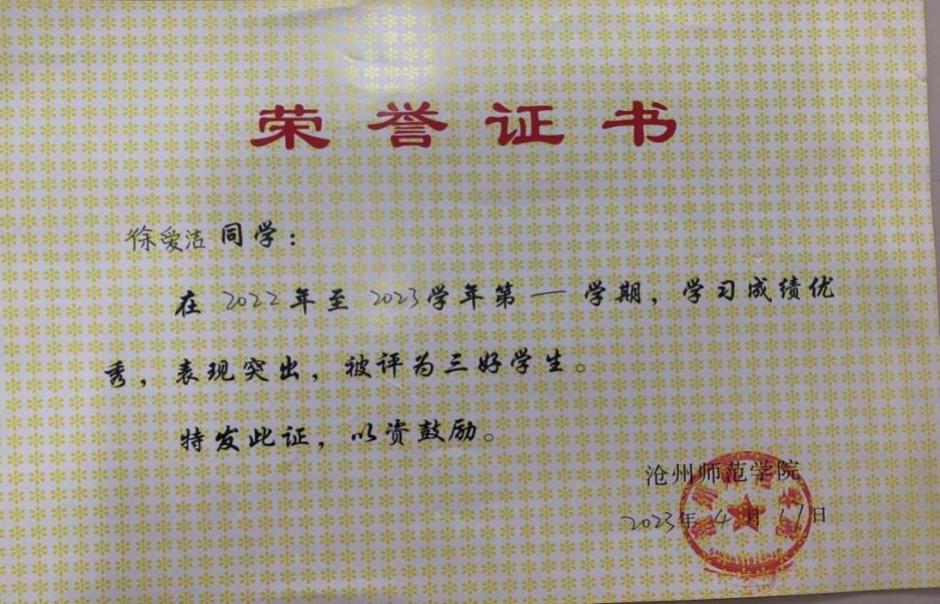 荣誉证书
徐爱洁同学：
在2022年至2023学年第一学期，学习成绩优
秀，表现突出，被评为三好学生。
特发此证，以资鼓励。
沧州师范学院
2023年4月17日